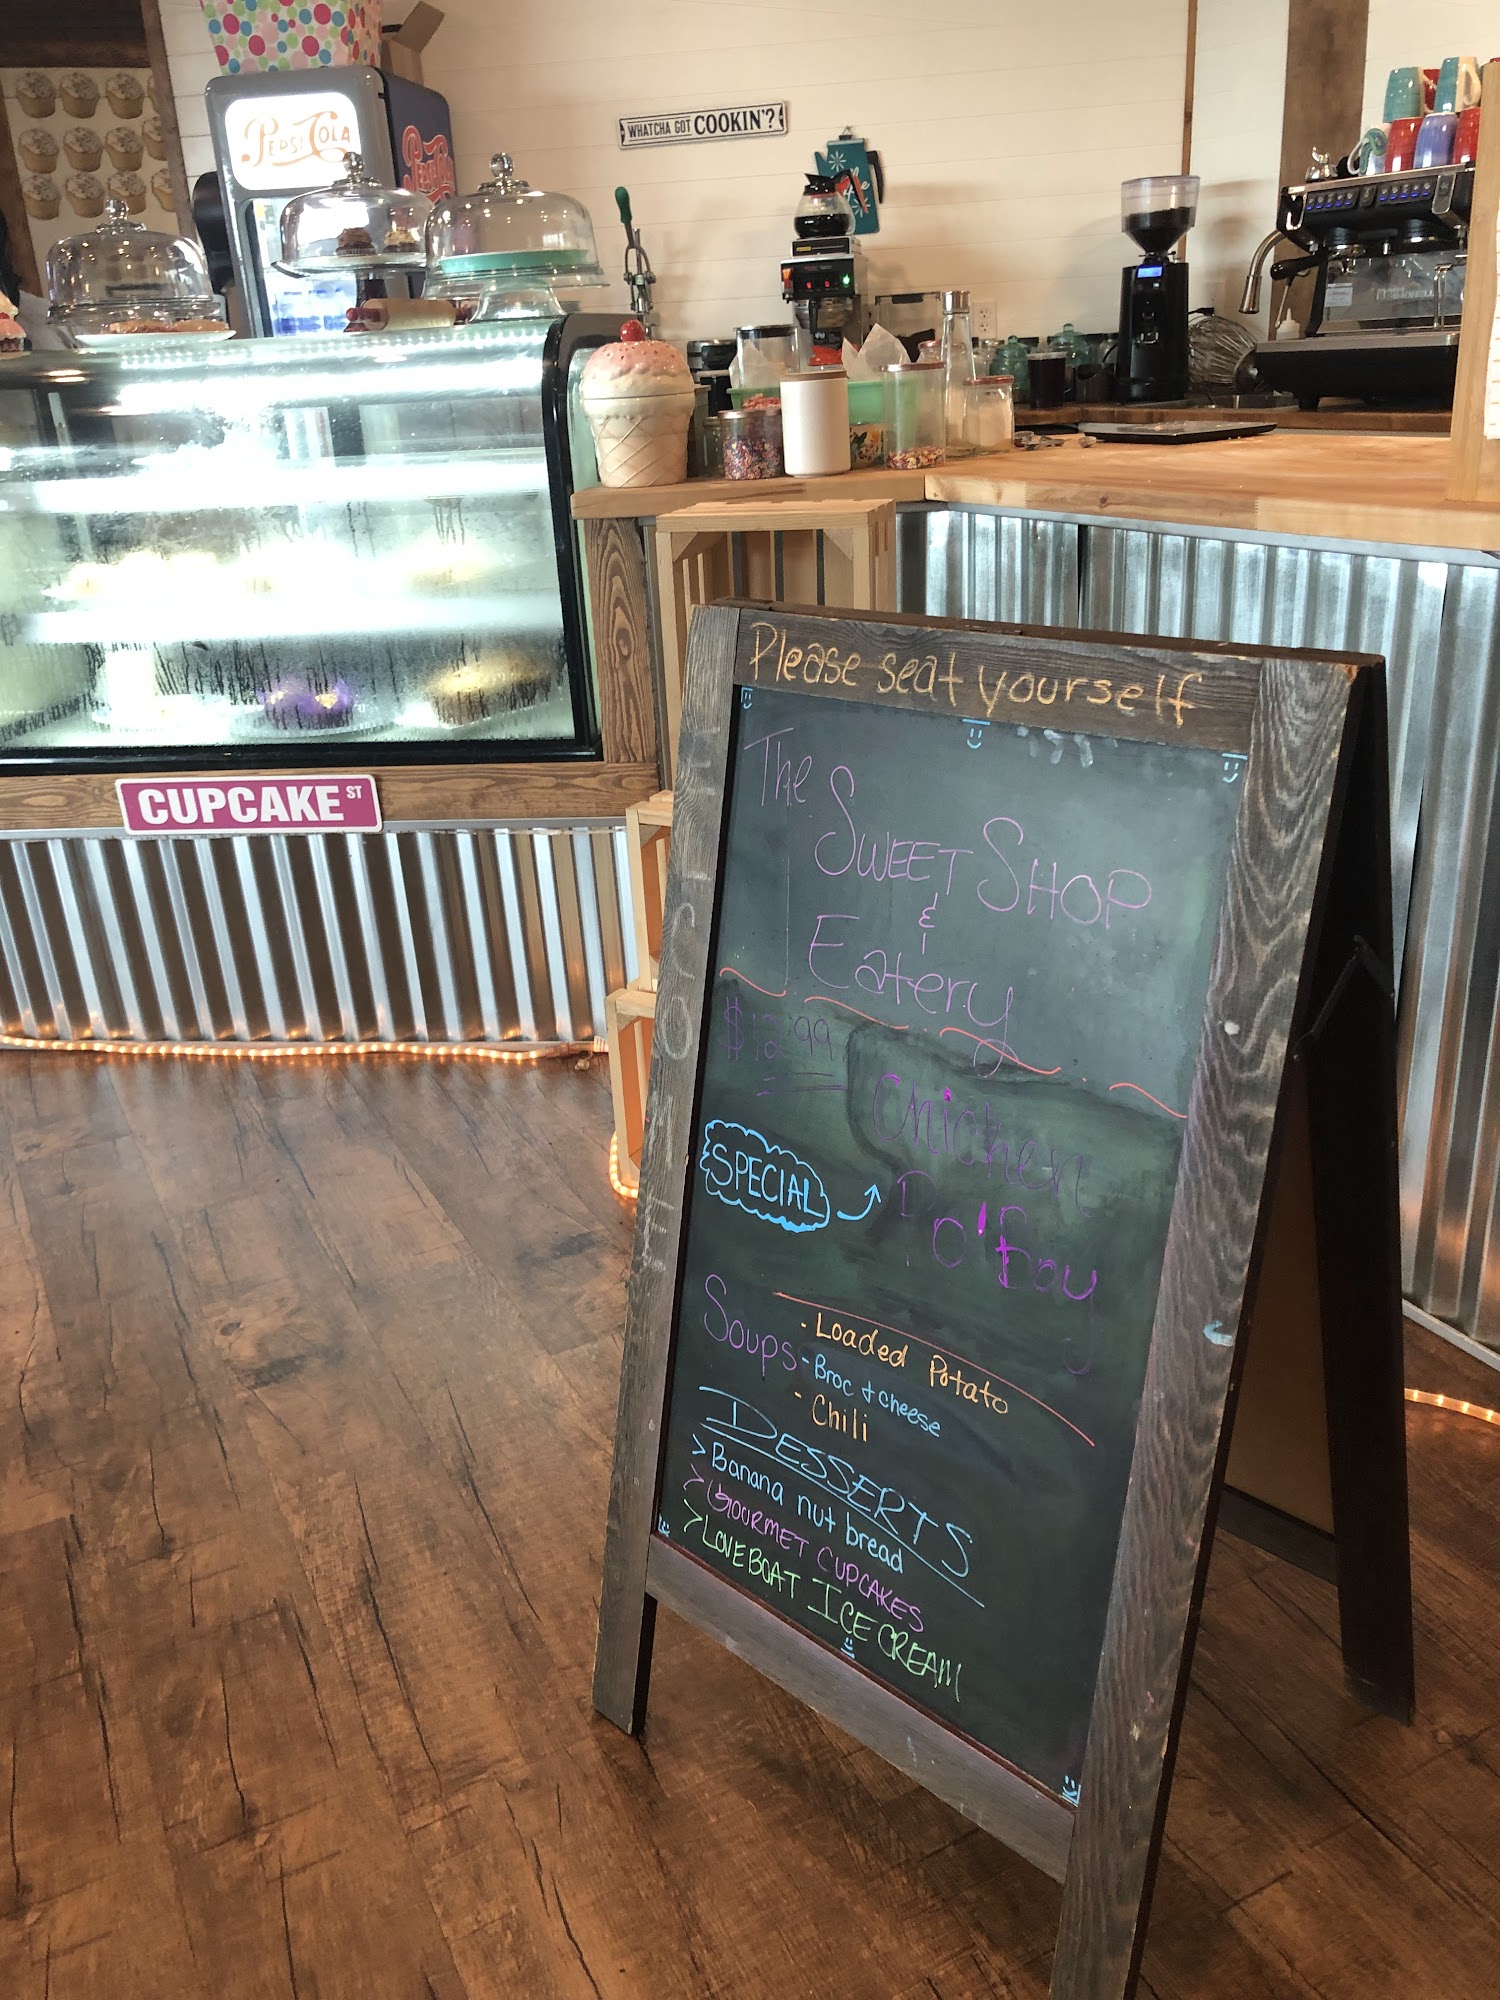 PEPSI COLA
WHATCHA GOT COOKIN'?
CUPCAKE ST
Please seat yourself
The
SWEET SHOP
&
Eatery
$12.99
Chicken
Po'Boy
SPECIAL
Soups
- Loaded Potato
- Broc & cheese
- Chili
DESSERTS
> Banana nut bread
> GOURMET CUPCAKES
> LOVEBOAT ICE CREAM